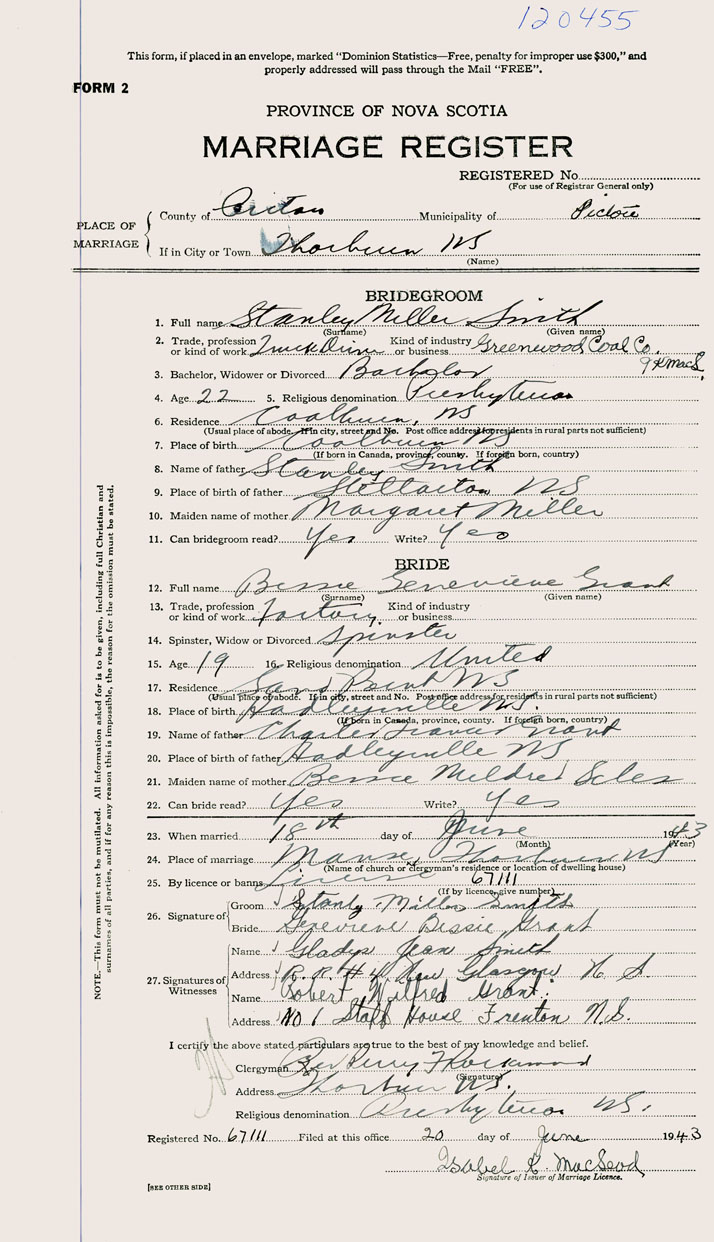 120455
This form, if placed in an envelope, marked "Dominion Statistics—Free, penalty for improper use $300," and
properly addressed will pass through the Mail "FREE".
FORM 2
PROVINCE OF NOVA SCOTIA
MARRIAGE REGISTER
REGISTERED No
(For use of Registrar General only)
PLACE OF MARRIAGE
County of Municipality of Pictou
If in City or Town Thorburn NS
(Name)
BRIDEGROOM
1. Full name Stanley Miller Smith
(Surname) (Given name)
2. Trade, profession or kind of work Truck Driver Kind of industry or business Greenwood Coal Co.
3. Bachelor, Widower or Divorced Bachelor
4. Age 22 5. Religious denomination Presbyterian
6. Residence Coalburn, NS
(Usual place of abode. If in city, street and No. Post office address for residents in rural parts not sufficient)
7. Place of birth Coalburn NS
(If born in Canada, province, county. If foreign born, country)
8. Name of father Stanley Smith
9. Place of birth of father Stellarton NS
10. Maiden name of mother Margaret Miller
11. Can bridegroom read? Yes Write? Yes
BRIDE
12. Full name Bessie Genevieve Grant
(Surname) (Given name)
13. Trade, profession or kind of work Factory Kind of industry or business
14. Spinster, Widow or Divorced Spinster
15. Age 19 16. Religious denomination United
17. Residence Sand Point NS
(Usual place of abode. If in city, street and No. Post office address for residents in rural parts not sufficient)
18. Place of birth Hadleyville NS.
(If born in Canada, province, county. If foreign born, country)
19. Name of father Charles Francis Grant
20. Place of birth of father Hadleyville NS
21. Maiden name of mother Bessie Mildred
22. Can bride read? Yes Write? Yes
23. When married 18th day of June 1943
(Month) (Year)
24. Place of marriage Manse, Thorburn NS
(Name of church or clergyman's residence or location of dwelling house)
25. By licence or banns License 67111
(If by licence, give number)
26. Signature of Groom Stanly Miller Smith
Bride Genevieve Bessie Grant
27. Signatures of Witnesses
Name Gladys Jean Smith
Address R.R. #4 New Glasgow N.S.
Name Robert Wilfred Grant.
Address No 1 Staff House Trenton N.S.
I certify the above stated particulars are true to the best of my knowledge and belief.
Clergyman
(Signature)
Address Thorburn NS.
Religious denomination Presbyterian NS.
Registered No. 67111 Filed at this office 20 day of June 1943
Isabel K. MacLeod
Signature of Issuer of Marriage Licence.
[SEE OTHER SIDE]
NOTE.—This form must not be mutilated. All information asked for is to be given, including full Christian and
surnames of all parties, and if for any reason this is impossible, the reason for the omission must be stated.